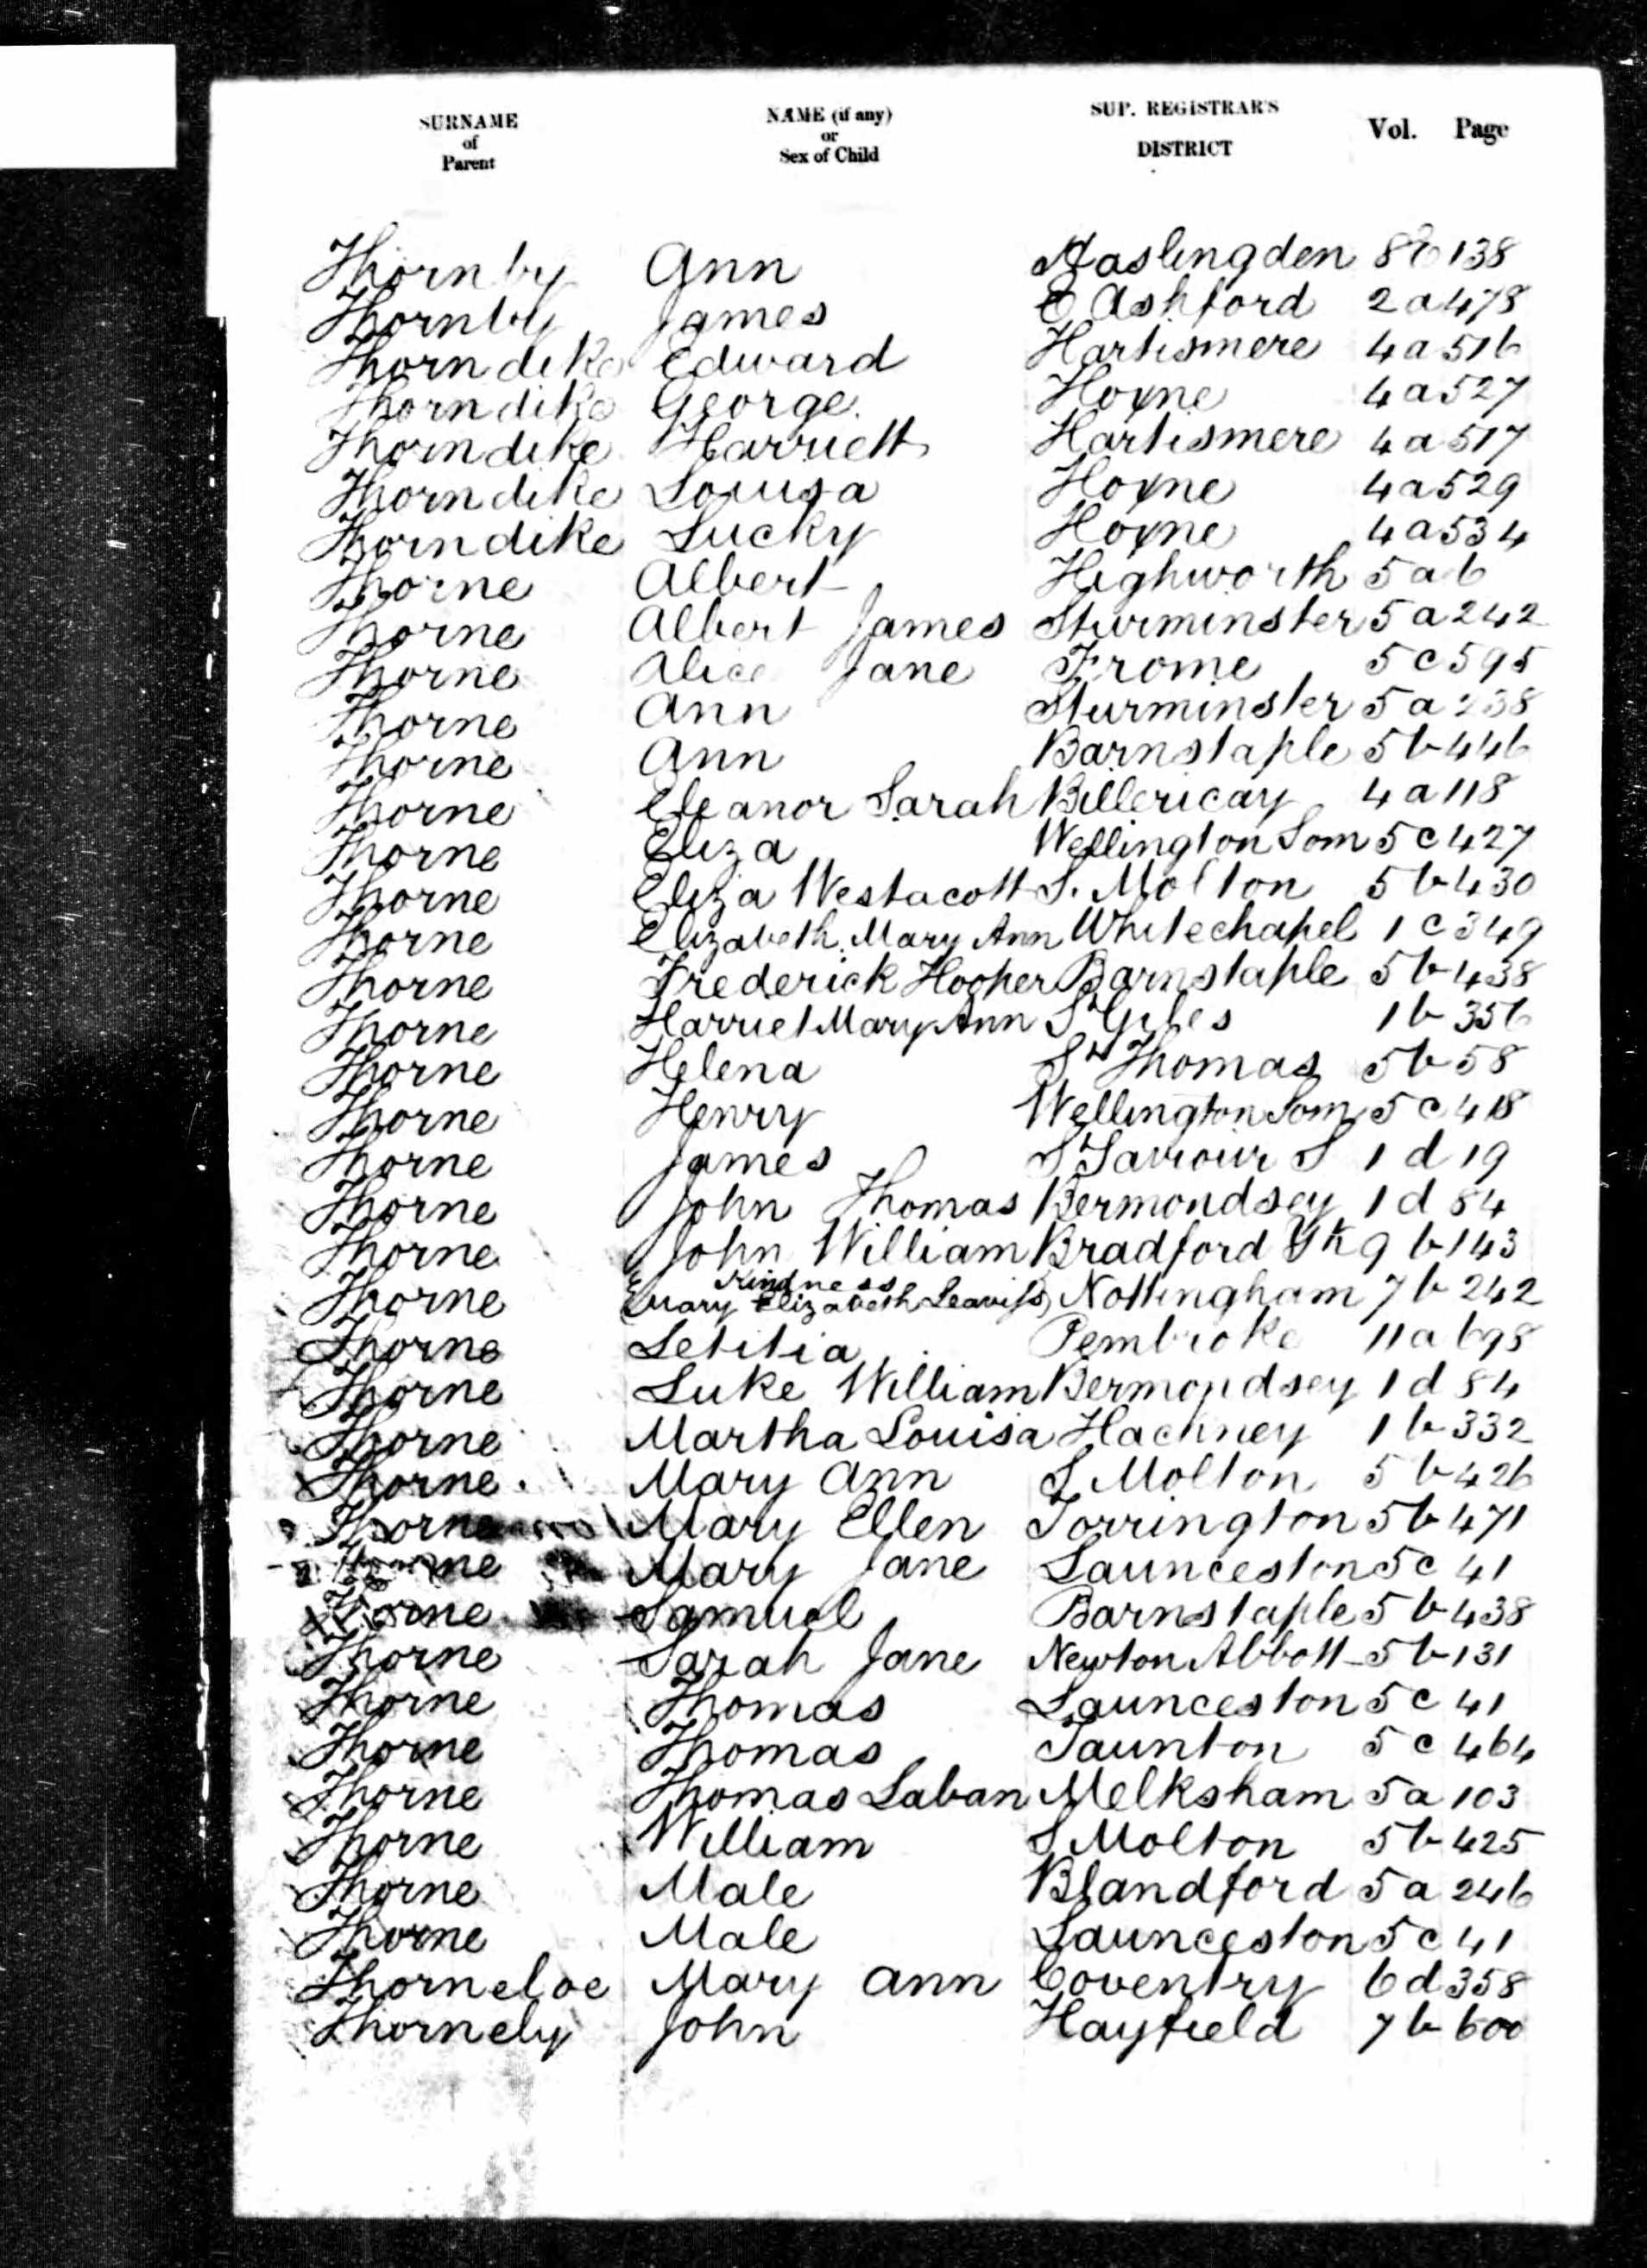 SURNAME of Parent NAME (if any) or Sex of Child SUP. REGISTRAR'S DISTRICT Vol. Page
Thornby Ann Haslingden 8E 138
Thornby James E Ashford 2a 478
Thorndike Edward Hartismere 4a 516
Thorndike George Hoxne 4a 527
Thorndike Harriett Hartismere 4a 517
Thorndike Louisa Hoxne 4a 529
Thorndike Lucky Hoxne 4a 534
Thorne Albert Highworth 5a 6
Thorne Albert James Sturminster 5a 242
Thorne Alice Jane Frome 5c 595
Thorne Ann Sturminster 5a 238
Thorne Ann Barnstaple 5b 446
Thorne Eleanor Sarah Billericay 4a 118
Thorne Eliza Wellington Som 5c 427
Thorne Eliza Westacott S. Molton 5b 430
Thorne Elizabeth Mary Ann Whitechapel 1c 349
Thorne Frederick Hooper Barnstaple 5b 438
Thorne Harriet Mary Ann St Giles 1b 356
Thorne Helena St Thomas 5b 58
Thorne Henry Wellington Som 5c 418
Thorne James St Saviour S 1d 19
Thorne John Thomas Bermondsey 1d 84
Thorne John William Bradford Yk 9b 143
Thorne Kindness Mary Elizabeth Leaviss Nottingham 7b 242
Thorne Letitia Pembroke 11a 698
Thorne Luke William Bermondsey 1d 84
Thorne Martha Louisa Hackney 1b 332
Thorne Mary Ann S Molton 5b 426
Thorne Mary Ellen Torrington 5b 471
Thorne Mary Jane Launceston 5c 41
Thorne Samuel Barnstaple 5b 438
Thorne Sarah Jane Newton Abbott 5b 131
Thorne Thomas Launceston 5c 41
Thorne Thomas Taunton 5c 464
Thorne Thomas Laban Melksham 5a 103
Thorne William S Molton 5b 425
Thorne Male Blandford 5a 246
Thorne Male Launceston 5c 41
Thorneloe Mary Ann Coventry 6d 358
Thornely John Hayfield 7b 600